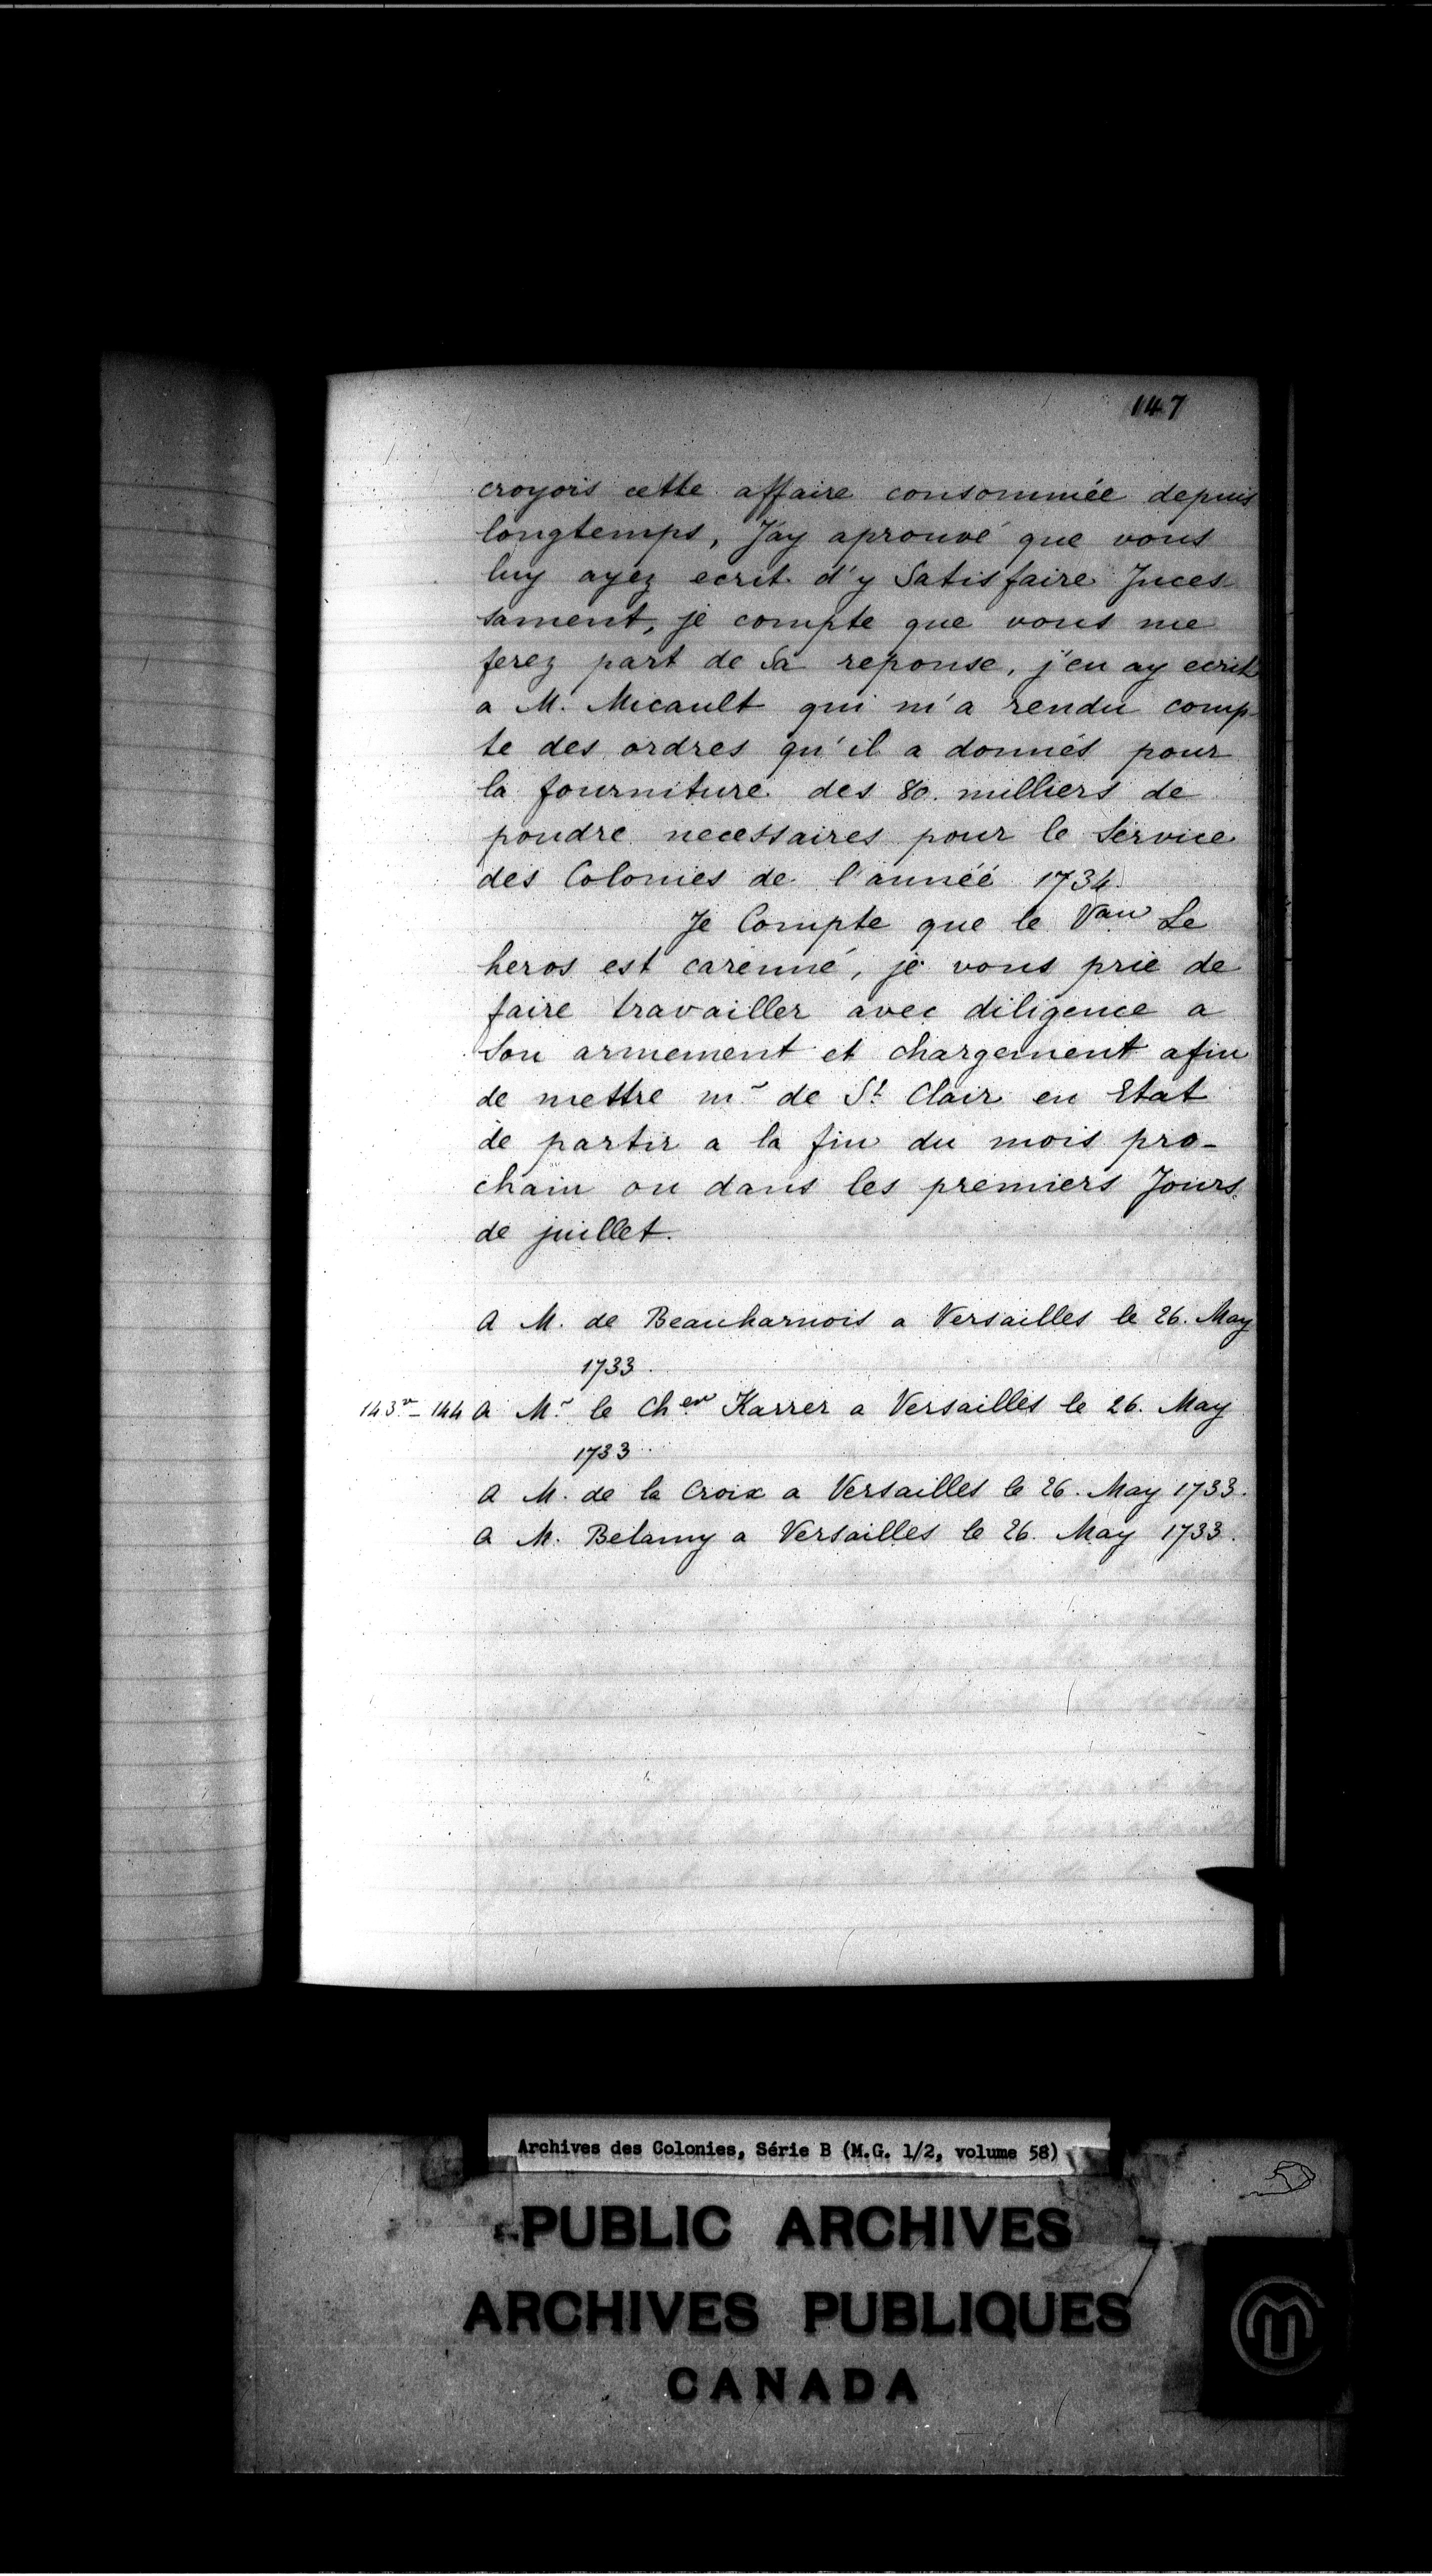 147
croyois cette affaire consommée depuis
longtemps, J'ay aprouvé que vous
luy ayez ecrit d'y Satisfaire Inces-
sament, je compte que vous me
ferez part de Sa reponse, j'en ay ecrit
a M. Micault qui m'a rendu comp-
te des ordres qu'il a donnés pour
la fourniture des 80. milliers de
poudre necessaires pour le Service
des Colonies de l'année 1734.
Je Compte que le Vau Le
heros est carenné, je vous prie de
faire travailler avec diligence a
Son armement et chargement afin
de mettre mr de St Clair en Etat
de partir a la fin du mois pro-
chain ou dans les premiers Jours
de juillet.
A M. de Beauharnois a Versailles le 26. May
1733.
143v - 144 A Mr le Cher Karrer a Versailles le 26. May
1733.
A M. de la Croix a Versailles le 26. May 1733.
A M. Belamy a Versailles le 26. May 1733.
Archives des Colonies, Série B (M.G. 1/2, volume 58)
PUBLIC ARCHIVES
ARCHIVES PUBLIQUES
CANADA